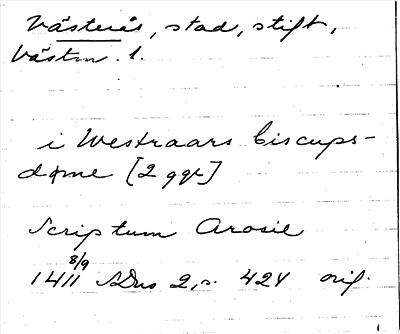 Västerås, stad, stift,
Västm. l.
i Westraars biscups-
døme [2 ggr]
Scriptum Arosie
8/9
1411 SDns 2, s. 424 orig.